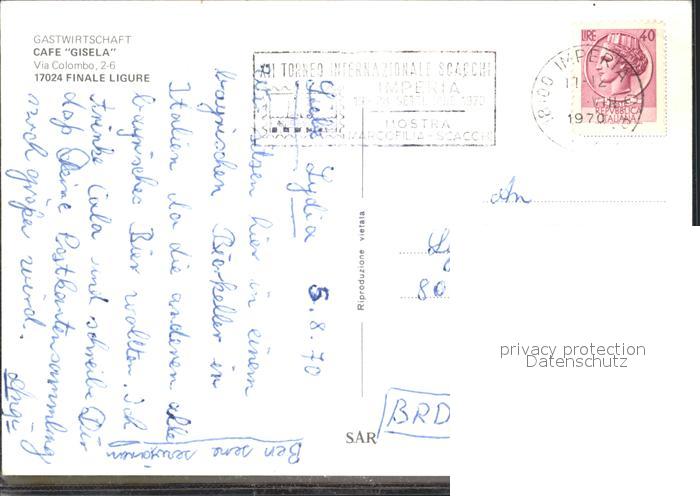 GASTWIRTSCHAFT
CAFE "GISELA"
Via Colombo, 2-6
17024 FINALE LIGURE
LIRE 40
REPVBBLICA
ITALIANA
XII TORNEO INTERNAZIONALE SCACCHI
IMPERIA
1970
MOSTRA
MARCOFILIA - SCACCHI
18-00 IMPERIA
1970
5.8.70
Liebe Lydia
sitzen hier in einem
bayrischen Bierkeller in
Italien da die anderen alle
bayrisches Bier wollten. Ich
trinke Cola und schreibe Dir
daß Deine Postkartensammlung
noch größer wird.
Riproduzione vietata
An
80
BRD
SAR
privacy protection
Datenschutz